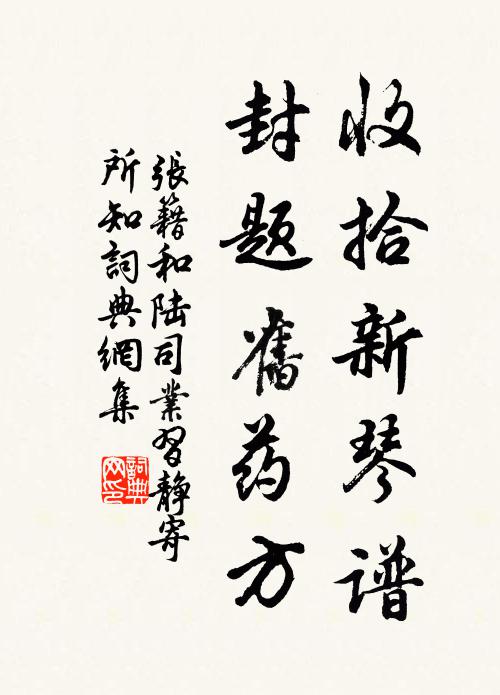 收拾新琴譜
封题舊药方
張籍和陆司業習静寄
所知詞典網集
詞典网印